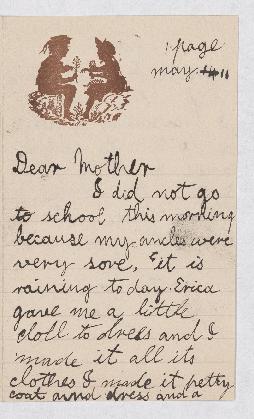 1 page
may 11
Dear Mother
I did not go
to school this morning
because my ancles were
very sore, & it is
raining to day. Erica
gave me a little
doll to dress and I
made it all its
clothes I made it petty
coat and dress and a